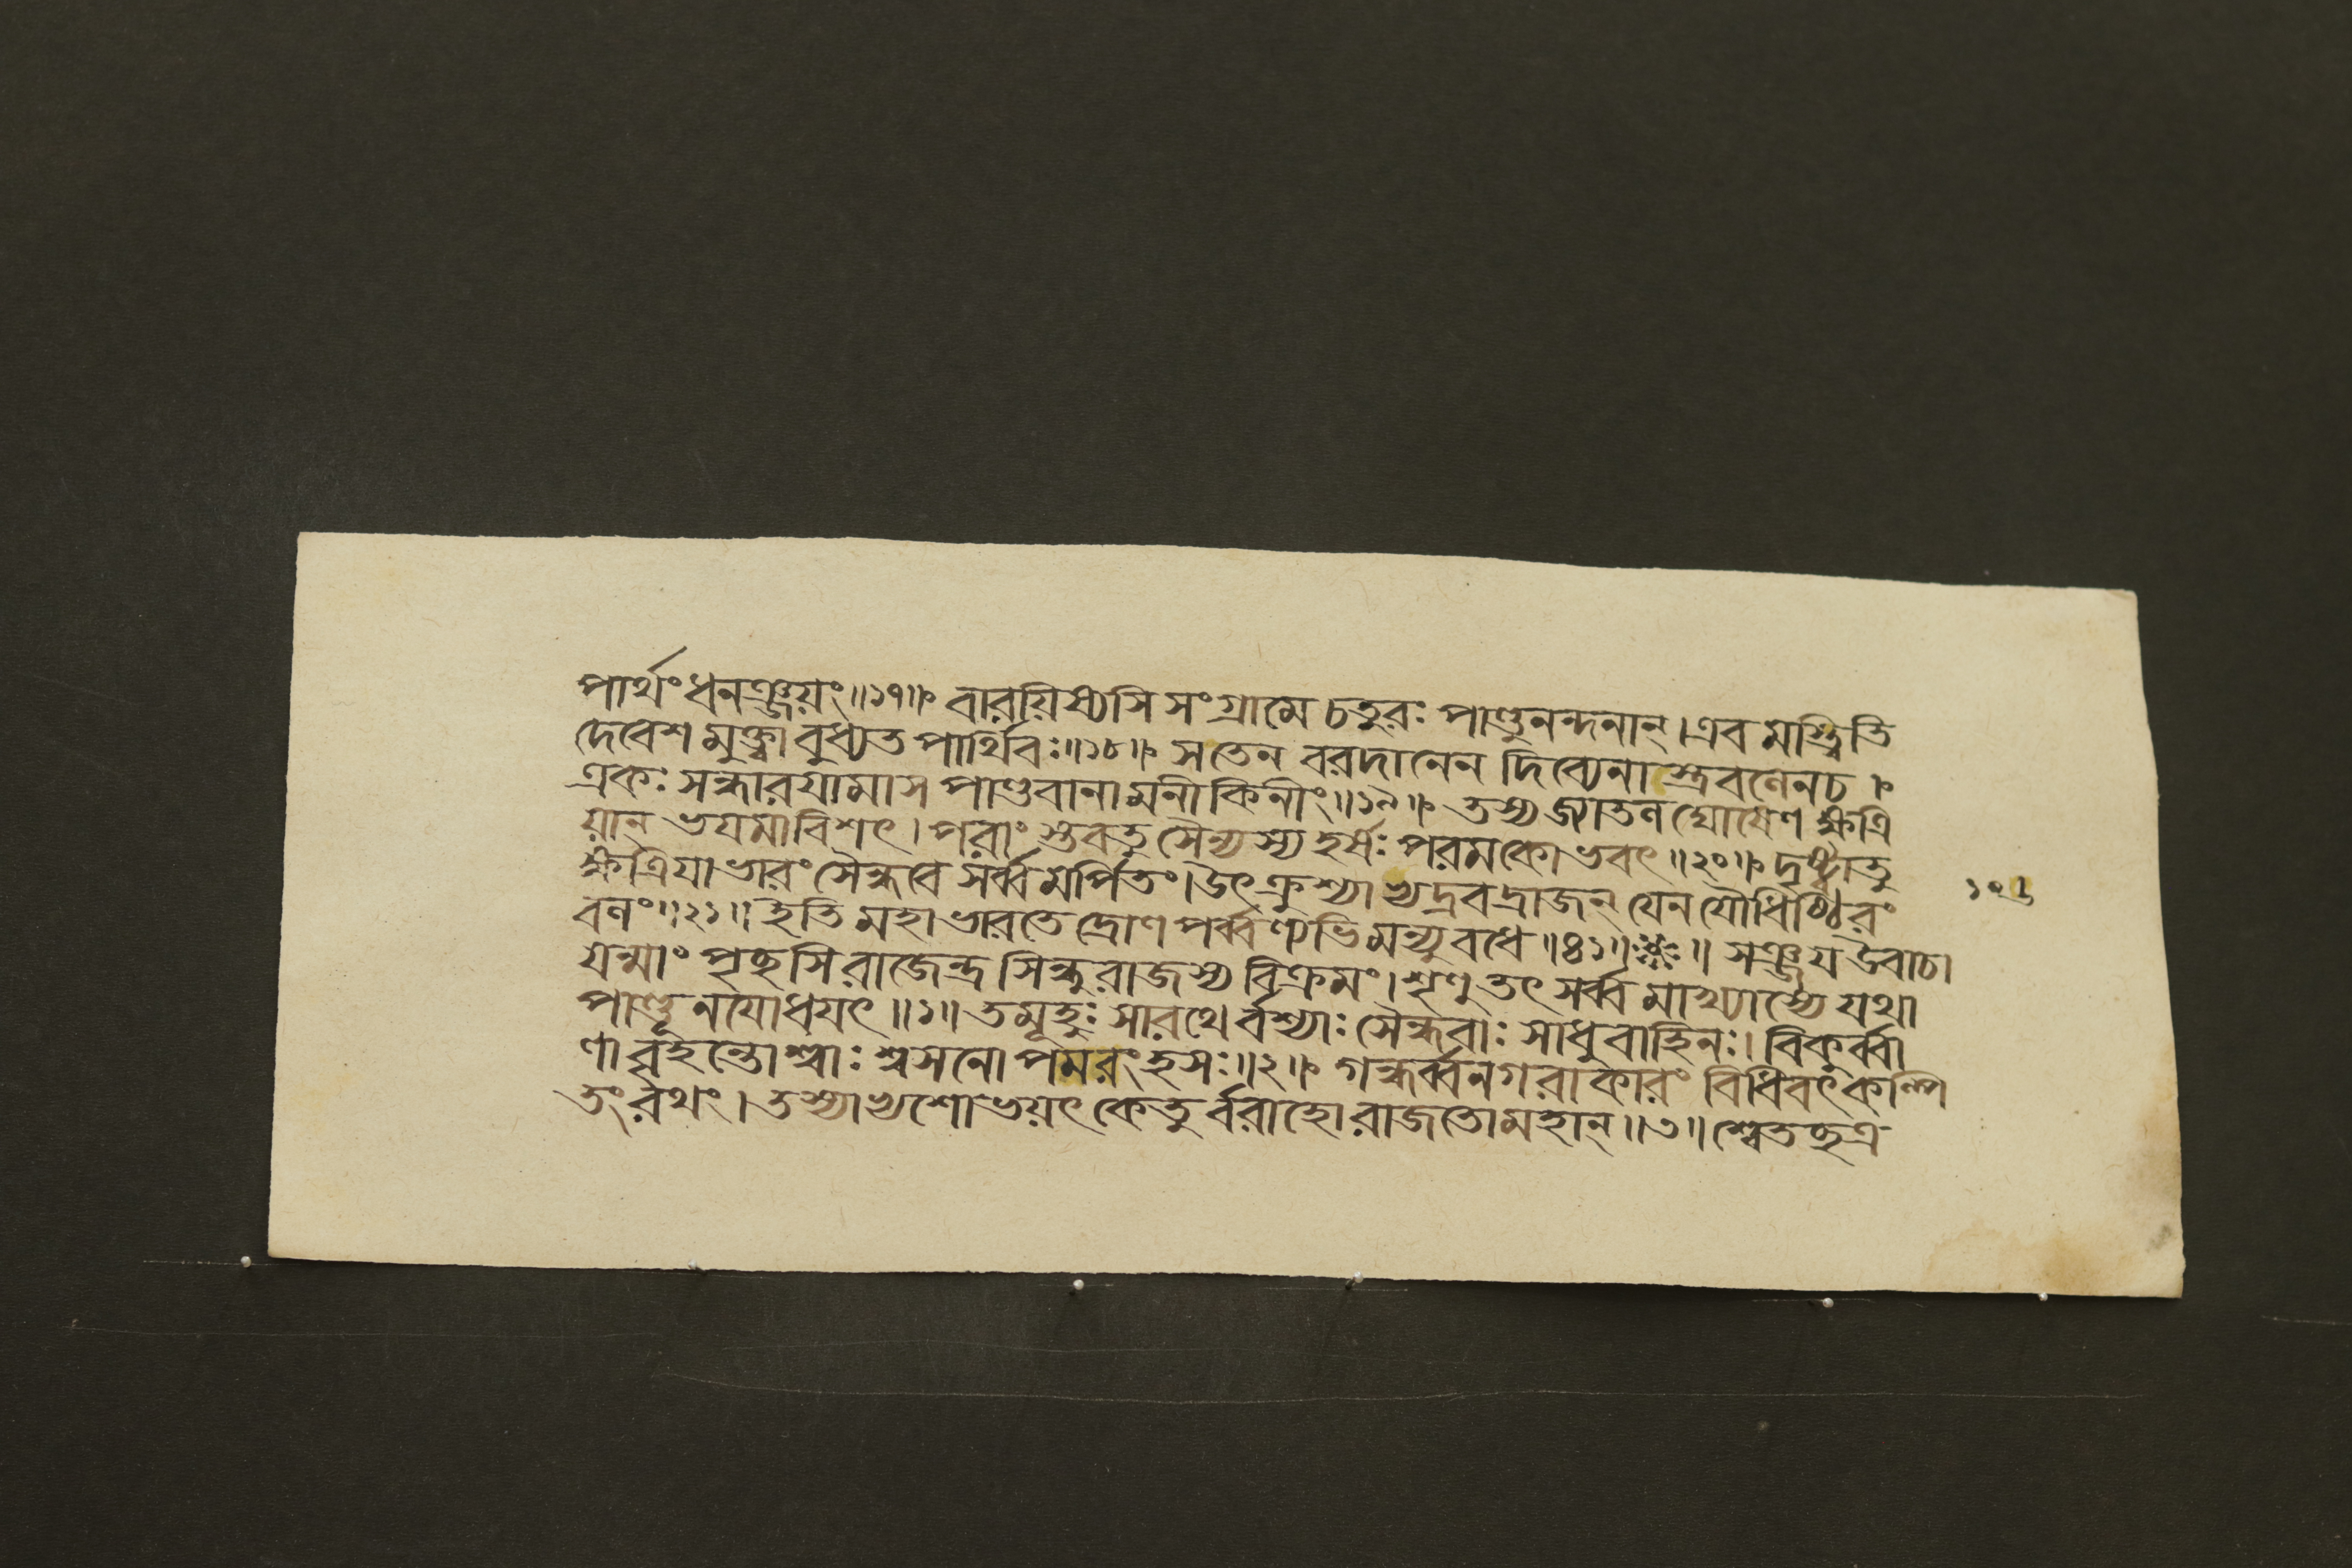 পার্থংধনঞ্জয়ং॥১৭॥ বারয়িষ্যসি সংগ্রামে চতুরঃ পাণ্ডুনন্দনান্।এব মস্ত্বিতি
দেবেশ মুক্ত্বা বুধ্যত পার্থিবঃ॥১৮॥ সতেন বরদানেন দিব্যেনাস্ত্রবলেনচ।
একঃ সন্ধারযামাস পাণ্ডবানা মনীকিনীং॥১৯॥ তস্য জ্যাতল ঘোষেণ ক্ষত্রি
য়ান্ ভযমাবিশৎ। পরাং স্তুবতু সৈন্যস্য হর্ষঃ পরমকো ভবৎ॥২০॥ দৃষ্ট্বাতু
ক্ষত্রিযা ভারং সৈন্ধবে সর্ব্ব মর্পিতং।উৎক্রুশ্যাভ্যদ্রবদ্রাজন্ যেন যৌধিষ্ঠিরং
বলং॥২১॥ ইতি মহাভারতে দ্রোণপর্ব্বণ্যভিমন্যুবধে॥৪১॥ ॥ সঞ্জয উবাচ।
যন্মাং পৃছসি রাজেন্দ্র সিন্ধুরাজস্য বিক্রমং।শৃণু তৎ সর্ব্ব মাখ্যাস্যে যথা
পাণ্ডূনযোধযৎ॥১॥ তমূহুঃ সারথে র্বশ্যাঃ সৈন্ধবাঃ সাধুবাহিনঃ। বিকুর্ব্বা
ণা বৃহন্তোশ্বাঃ শ্বসনোপমরংহসঃ॥২॥ গন্ধর্ব্বনগরাকারং বিধিবৎকল্পি
তং রথং। তস্যাভ্যশোভয়ৎ কেতু র্ব্বরাহোরাজতোমহান্॥৩॥ শ্বেতছত্র